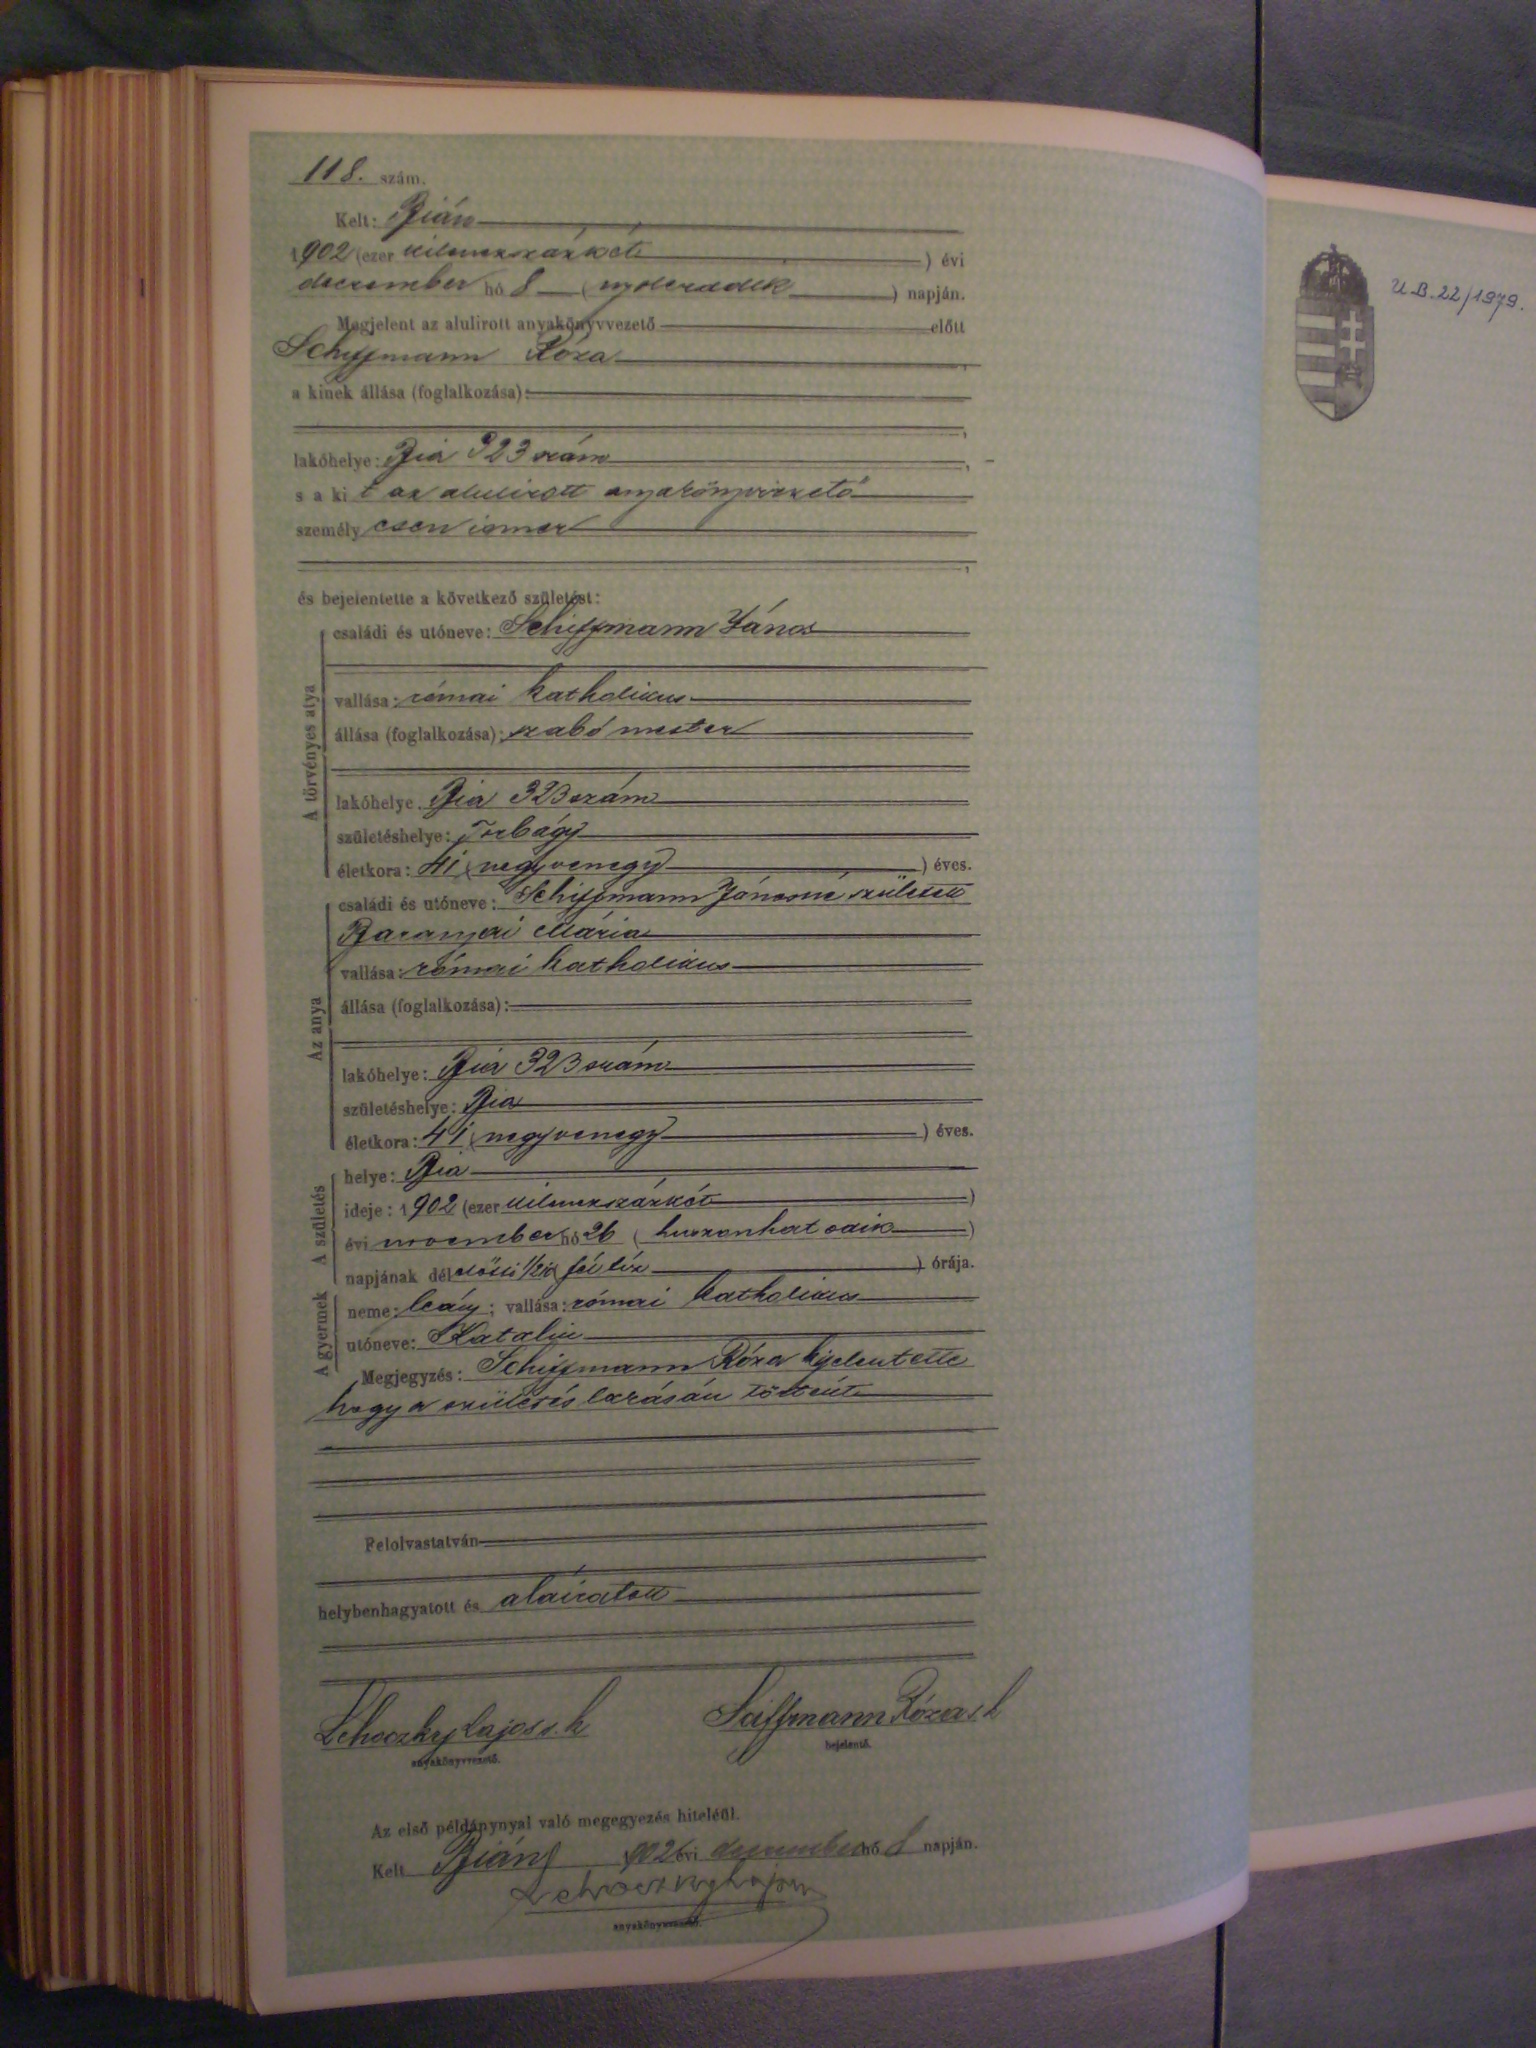 118. szám.
Kelt: Bián
1902 (ezer kilencszázkét ) évi
december hó 8 ( nyolczadik ) napján.
Megjelent az alulirott anyakönyvvezető előtt
Schiffmann Róza ,
a kinek állása (foglalkozása):
,
lakóhelye: Bia 323 szám ,
s a ki t az alulirott anyakönyvvezető
személy esen ismer
,
és bejelentette a következő születést:
A törvényes atya
családi és utóneve: Schiffmann János
vallása: római katholikus
állása (foglalkozása): szabó mester
lakóhelye. Bia 323 szám
születéshelye: Torbágy
életkora: 41 (negyvenegy ) éves.
Az anya
családi és utóneve: Schiffmann Jánosné született
Baranyai Mária
vallása: római katholikus
állása (foglalkozása):
lakóhelye: Bia 323 szám
születéshelye: Bia
életkora: 41 (negyvenegy ) éves.
A születés
helye: Bia
ideje: 1902 (ezer kilenczszázkét )
évi november hó 26 ( huszonhat odik )
napjának dél előtti 1/210 fél tíz ) órája.
A gyermek
neme: leány; vallása: római katholikus
utóneve: Katalin
Megjegyzés: Schiffmann Róza kijelentette
hogy a születés lakásán történt
Felolvastatván
helybenhagyatott és aláiratott
Lehoczky Lajos s. k Schiffmann Róza s. k
anyakönyvvezető. bejelentő.
Az első példánynyal való megegyezés hiteléül.
Kelt Bián 902 évi december hó 8 napján.
Lehoczky Lajos
anyakönyvvezető.
U.B. 22/1979.